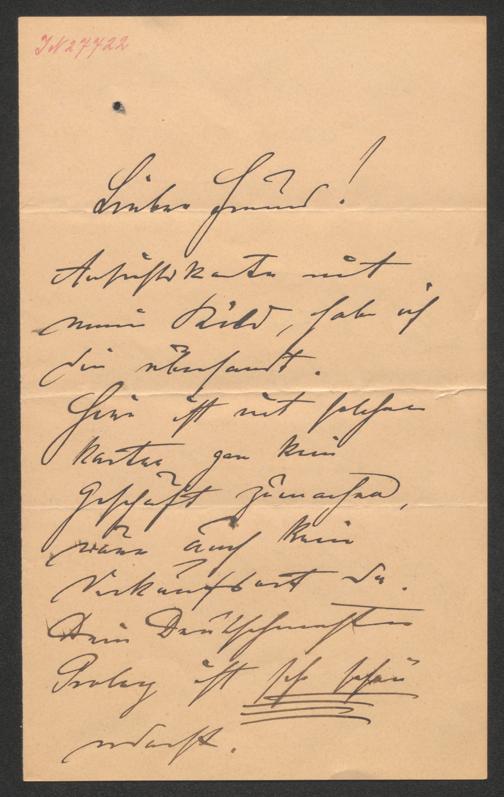 IN 27722
Lieber Freund!
Ansichtskarten mit
mein Bild, habe ich
dir übersandt.
Hier ist mit solchen
Karten gar kein
Geschäft zumachen,
wäre auch kein
Verkaufsort da.
Dein Deutschmeister
Prolog ist sehr schön